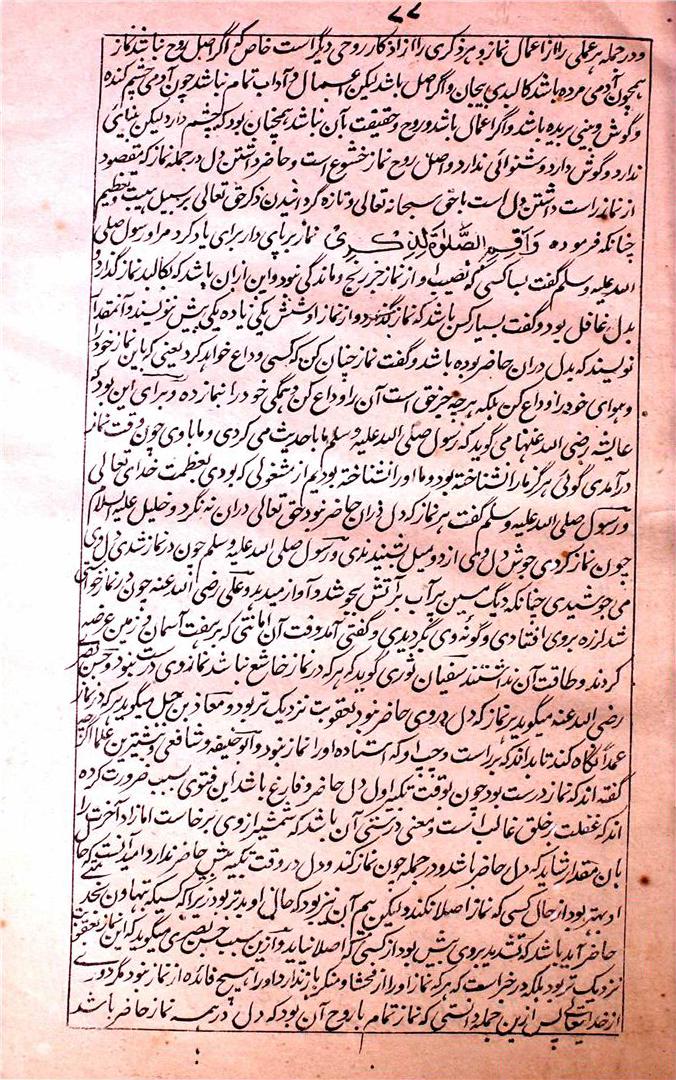 ۷۷
و در جمله هر عملی را از اعمال نماز و هر ذکری را از اذکار روحی دیگر است خاص که اگر اصل روح نباشد نماز
همچون آدمی مرده باشد کالبدی بیجان و اگر اصل باشد لیکن اعمال و آداب تمام نباشد چون آدمی چشم کنده
و گوش و بینی بریده باشد و اگر اعمال باشد و روح و حقیقت بآن نباشد همچنان بود که چشم دارد لیکن بینائی
ندارد و گوش دارد و شنوائی ندارد و اصل روح نماز خشوع است و حاضر داشتن دل در جمله نماز که مقصود
از نماز راست داشتن دل است با حق سبحانه تعالی و تازه گردانیدن ذکر حق تعالی بر سبیل هیبت و تعظیم
چنانکه فرموده وَاَقِمِ الصَّلٰوةَ لِذِکْرِیْ نماز برپای دار برای یاد کرد مرا و رسول صلی
الله علیه و سلم گفت بسا کسی که نصیب او از نماز جز رنج و ماندگی نبود و این ازان باشد که بکالبد نماز گذارد و
بدل غافل بود و گفت بسیار کس باشد که نماز گذارد و از نماز او شش یکی یا ده یکی بیش ننویسند و آنمقدار
نویسند که بدل دران حاضر بوده باشد و گفت نماز چنان کن که کسی وداع خواهد کرد یعنی که باین نماز خود را
و هوای خود را وداع کن بلکه هر چه جز حق است آن را وداع کن و همگی خود را بنماز ده و برای این بود که
عایشه رضی الله عنها می گوید که رسول صلی الله علیه و سلم با ما حدیث می کردی و ما با وی چون وقت نماز
درآمدی گوئی هرگز ما را نشناخته بود و ما او را نشناخته بودیم از مشغولی که بودی بعظمت خدای تعالی
و رسول صلی الله علیه و سلم گفت هر نماز که دل دران حاضر نبود حق تعالی دران نه نگرد و خلیل علیه السلام
چون نماز کردی جوش دل وی از دو میل بشنیدندی و رسول صلی الله علیه و سلم چون در نماز شدی دل وی
می جوشیدی چنانکه دیگ مسین پر آب بر آتش بجوشد و آواز میدهد و علی رضی الله عنه چون در نماز خواستی
شد لرزه بر وی افتادی و گونه وی بگردیدی و گفتی آمد وقت آن امانتی که بر هفت آسمان و زمین عرضه
کردند و طاقت آن نداشتند سفیان ثوری گوید که هر که در نماز خاشع نباشد نماز وی درست نبود و حسن بصری
رضی الله عنه میگوید هر نماز که دل در وی حاضر نبود بعقوبت نزدیک تر بود و معاذ بن جبل میگوید هر که در نماز
عمداً نگاه کند تا بداند که بر راست و چپ او که استاده او را نماز نبود و ابوحنیفه و شافعی و بیشترین علما اگرچه
گفته اند که نماز درست بود چون بوقت تکبیر اول دل حاضر و فارغ باشد این فتوی بسبب ضرورت کرده
اند که غفلت بر خلق غالب است و معنی درستی آن باشد که شمشیر از وی برخاست اما زاد آخرش را
بان مقدار شاید که دل حاضر باشد و در جمله چون نماز کند و دل در وقت تکبیر بیش حاضر ندارد امید آنست که حال
او بهتر بود از حال کسی که نماز اصلا نکند و لیکن بیم آن نیز بود که حالی او بدتر بود زیرا که کسیکه بتهاون بخدمت
حاضر آید باشد که تشدید بر وی بیش بود از کسی که اصلا نیاید و ازین سبب حسن بصری میگوید که این نماز بعقوبت
نزدیک تر بود بلکه در خبر است که هر که نماز او را از فحشا و منکر باز ندارد او را هیچ فائده از نماز نبود مگر دوری
از خدایتعالی پس ازین جمله دانستی که نماز تمام با روح آن بود که دل در همه نماز حاضر باشد